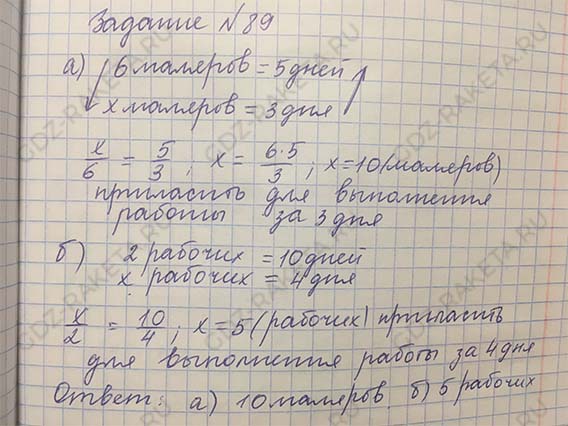 Задание №89
а) 6 маляров = 5 дней
х маляров = 3 дня
x/6 = 5/3; x = 6·5/3; x = 10 (маляров)
пригласить для выполнения
работы за 3 дня
б) 2 рабочих = 10 дней
х рабочих = 4 дня
x/2 = 10/4; x = 5 (рабочих) пригласить
для выполнения работы за 4 дня
Ответ: а) 10 маляров, б) 5 рабочих
GDZ-RAKETA.RU